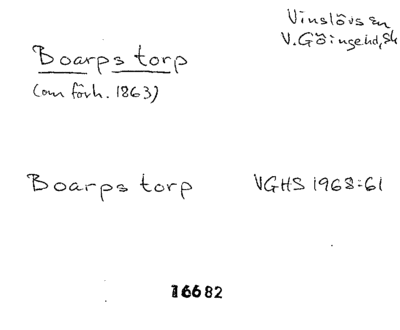 Vinslövs sn
V. Göingehd, Sk
Boarps torp
(om förh. 1863)
Boarps torp VGHS 1968:61
16682